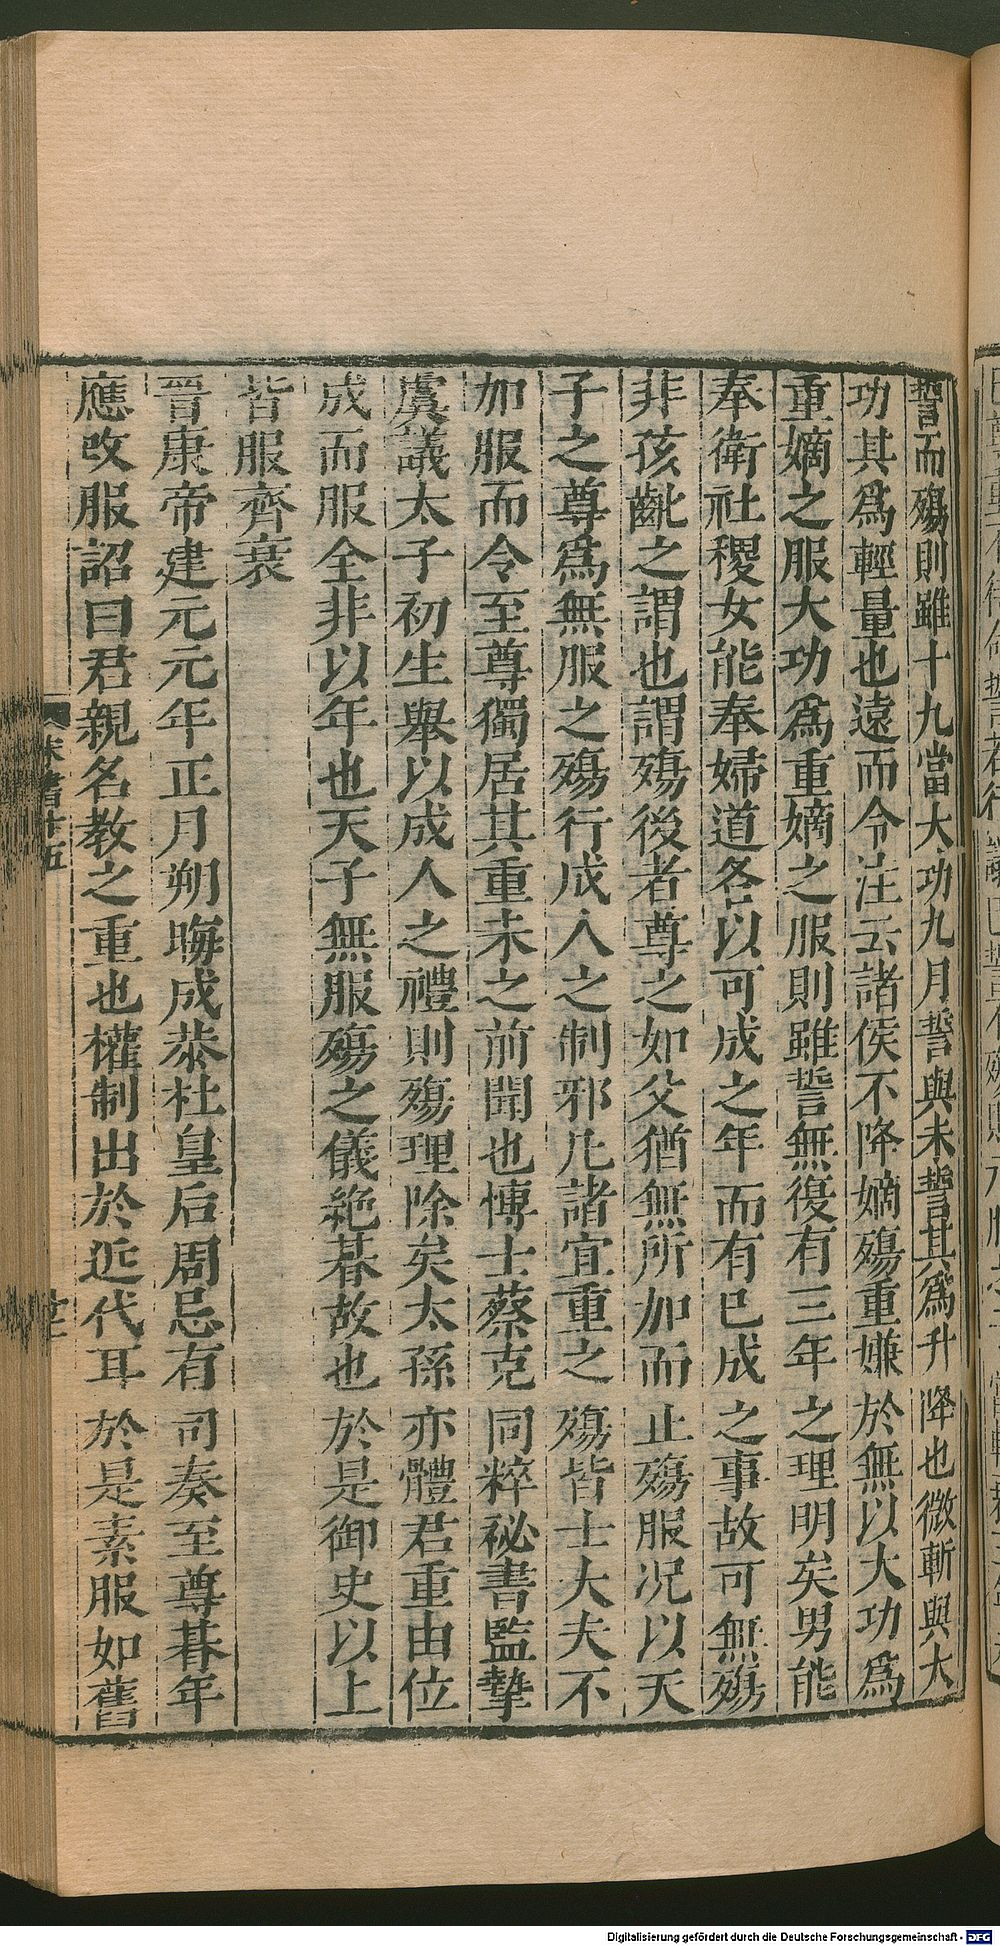 誓而殤則雖十九當大功九月誓與未誓其爲升降也微斬與大
功其爲輕量也遠而令注云諸侯不降嫡殤重嫌於無以大功爲
重嫡之服大功爲重嫡之服則雖誓無復有三年之理明矣男能
奉衛社稷女能奉婦道各以可成之年而有已成之事故可無殤
非孩齔之謂也謂殤後者尊之如父猶無所加而止殤服况以天
子之尊爲無服之殤行成人之制邪凡諸宜重之殤皆士大夫不
加服而令至尊獨居其重未之前聞也博士蔡克同粹祕書監摯
虞議太子初生舉以成人之禮則殤理除矣太孫亦體君重由位
成而服全非以年也天子無服殤之儀絶朞故也於是御史以上
皆服齊衰
晉康帝建元元年正月朔晦成恭杜皇后周忌有司奏至尊朞年
應改服詔曰君親名教之重也權制出於近代耳於是素服如舊
宋書十五
Digitalisierung gefördert durch die Deutsche Forschungsgemeinschaft - DFG